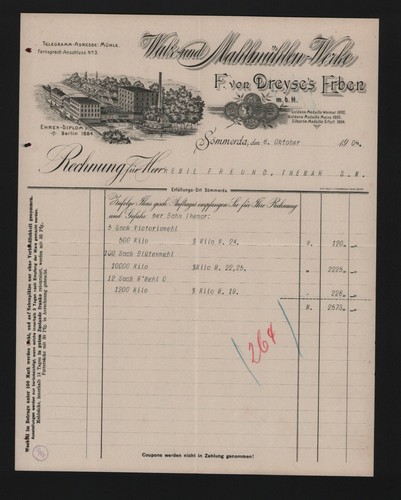 Telegramm-Adresse: Mühle.
Fernsprech-Anschluss No 3.
Walz- und Mahlmühlen-Werke
F. von Dreyse's Erben
m. b. H.
Goldene Medaille Weimar
Goldene Medaille Mainz
Silberne Medaille Erfurt
Ehren-Diplom
Berlin 1884.
Sömmerda, den 6. Oktober 1904.
Rechnung für Herrn EMIL FREUND, THEMAR S.M.
Erfüllungs-Ort Sömmerda.
Infolge Ihres gesch. Auftrages empfangen Sie für Ihre Rechnung
und Gefahr per Bahn Themar:
5 Sack Victoriamehl
500 Kilo % Kilo M. 24. M. 120.
100 Sack Blütenmehl
10000 Kilo % Kilo M. 22,25. 2225.
12 Sack R'Mehl 0
1200 Kilo % Kilo M. 19. 228.
M. 2573.
264
Coupons werden nicht in Zahlung genommen!